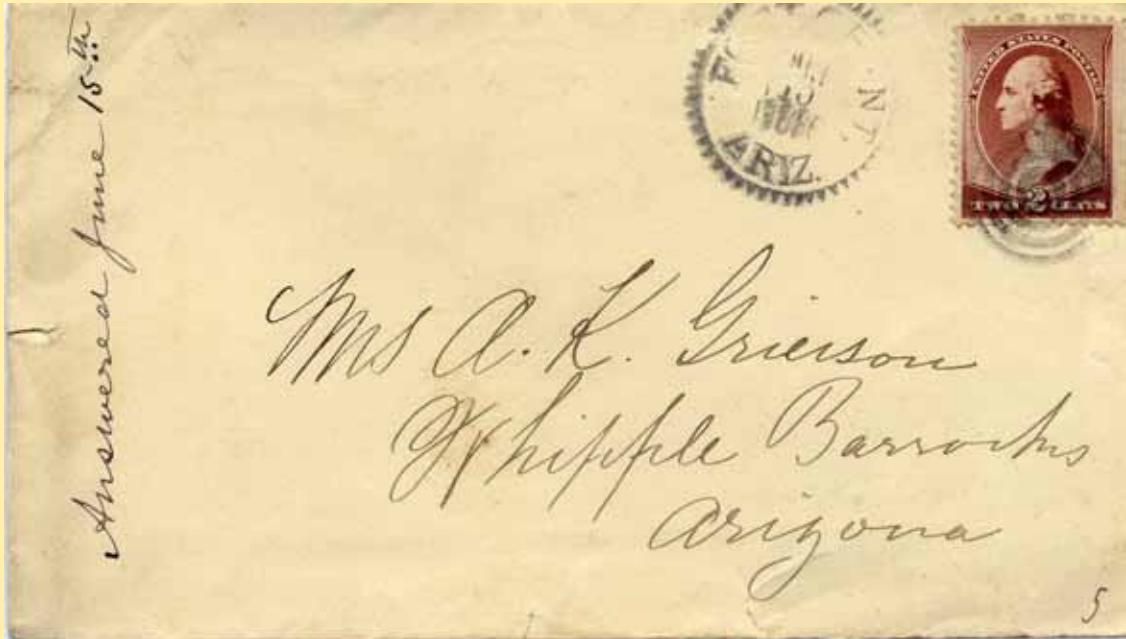 Answered June 15th
ARIZ.
UNITED STATES POSTAGE
TWO 2 CENTS
Mrs A. K. Grierson
Whipple Barrocks
Arizona
5